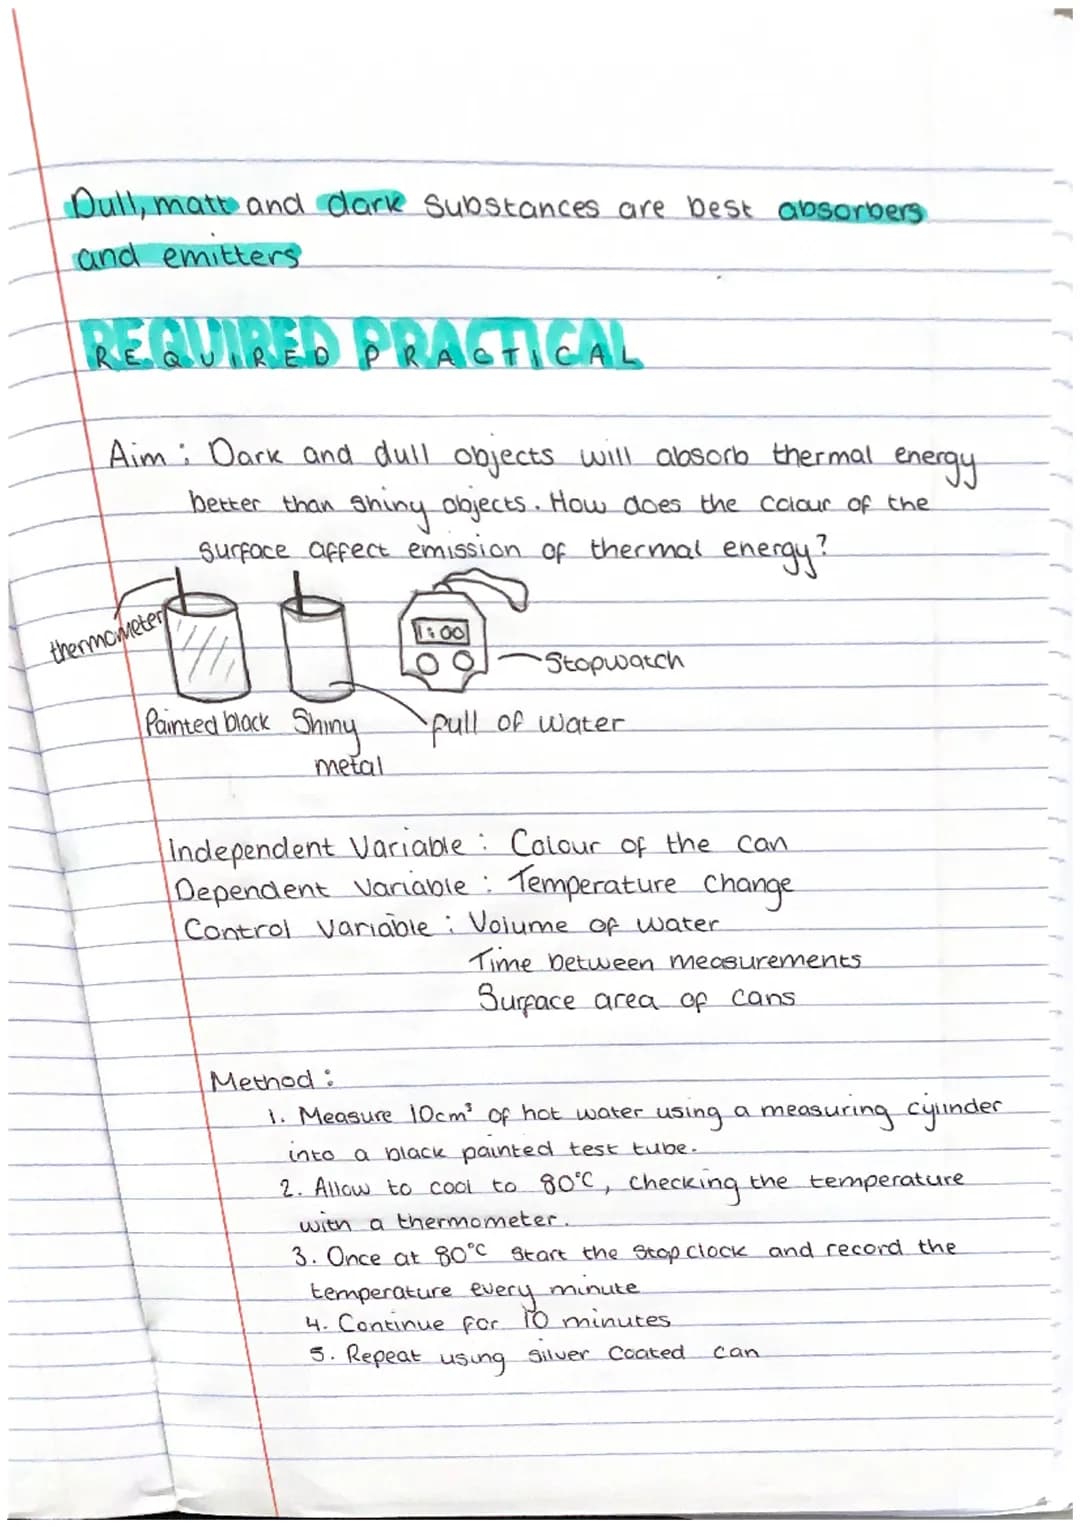 Dull, matt and dark substances are best absorbers
and emitters
REQUIRED PRACTICAL
Aim : Dark and dull objects will absorb thermal energy
better than shiny objects. How does the colour of the
surface affect emission of thermal energy?
thermometer
1:00
Stopwatch
Painted black Shiny
metal
full of water
Independent Variable : Colour of the can
Dependent Variable : Temperature change
Control Variable : Volume of water
Time between measurements
Surface area of cans
Method :
1. Measure 10cm³ of hot water using a measuring cylinder
into a black painted test tube.
2. Allow to cool to 80°C, checking the temperature
with a thermometer.
3. Once at 80°C start the stop clock and record the
temperature every minute
4. Continue for 10 minutes
5. Repeat using silver coated can